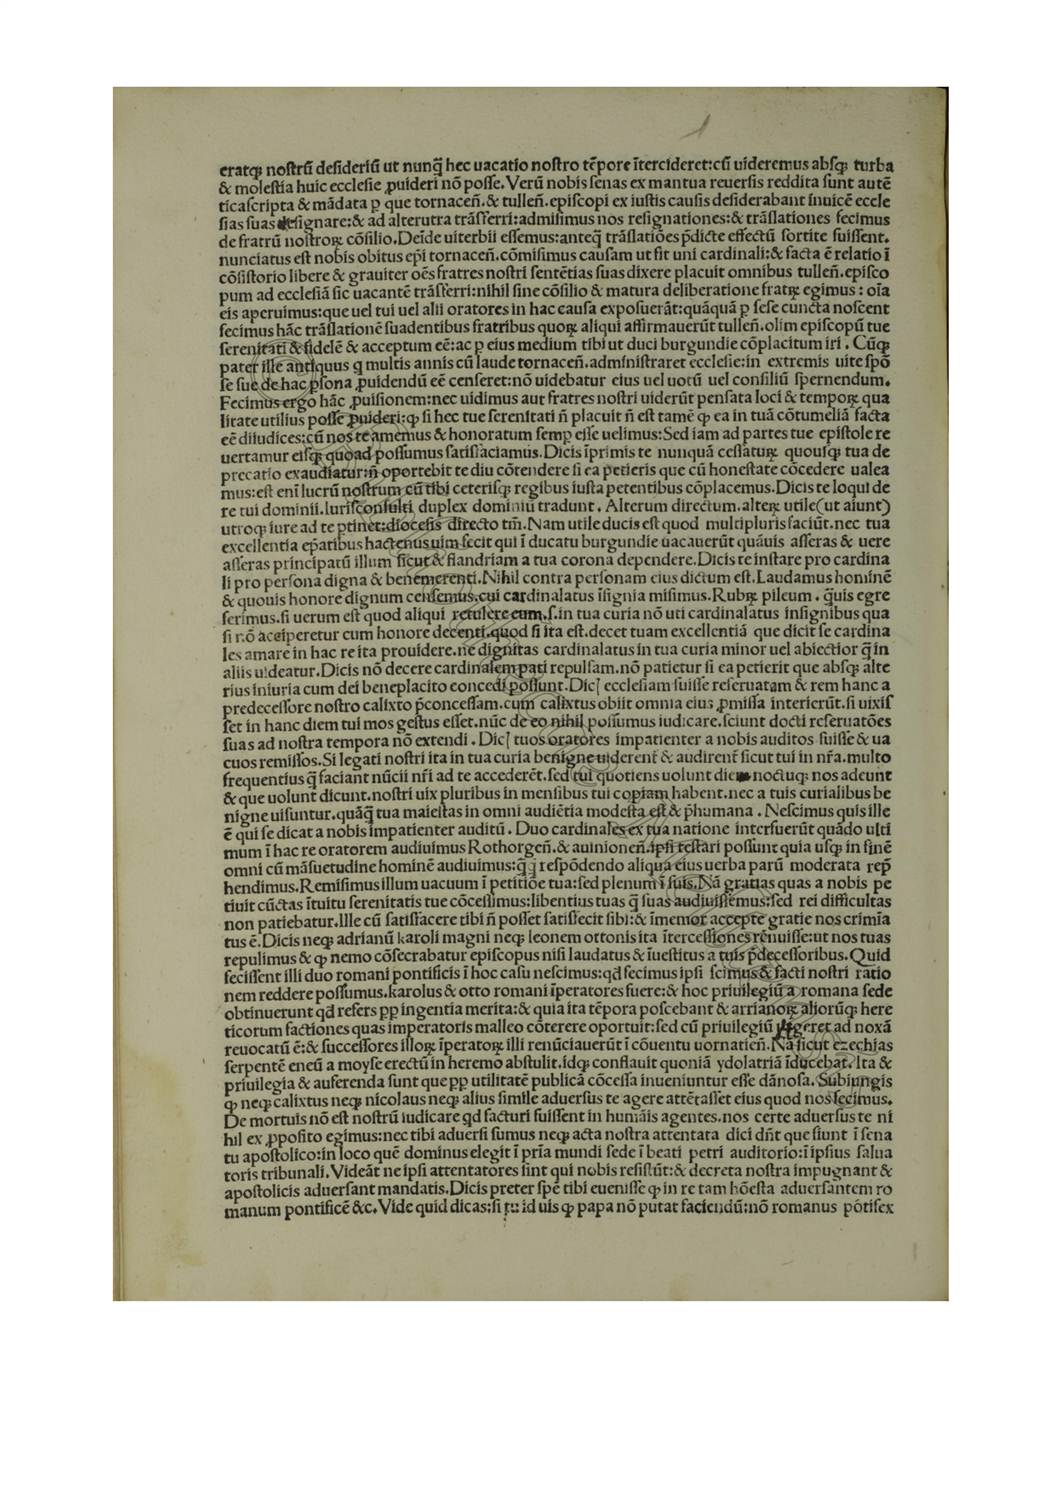 eratq; nostrū desideriū ut nunq̄ hec uacatio nostro tēpore ītercideret:cū uideremus absq; turba
& molestia huic ecclesie ꝓuideri nō posse.Verū nobis senas ex mantua reuersis reddita sunt autē
ticascripta & mādata ꝑ que tornaceñ.& tulleñ.episcopi ex iustis causis desiderabant inuicē eccle
sias suas resignare:& ad alterutra trāsferri:admisimus nos resignationes:& trāslationes fecimus
de fratrū nostroꝝ cōsilio.Deīde uiterbii essemus:anteq̄ trāslatiōes p̄dicte effectū sortite fuissent.
nunciatus est nobis obitus ep̄i tornaceñ.cōmisimus causam ut fit uni cardinali:& facta ē relatio ī
cōsistorio libere & grauiter oēs fratres nostri sentētias suas dixere placuit omnibus tulleñ.episco
pum ad ecclesiā sic uacantē trāsferri:nihil sine cōsilio & matura deliberatione fratꝝ egimus : oīa
eis aperuimus:que uel tui uel alii oratores in hac causa exposuerāt:quāquā ꝑ sese cuncta noscent
fecimus hāc trāslationē suadentibus fratribus quoꝝ aliqui affirmauerūt tulleñ.olim episcopū tue
serenitati & fidelē & acceptum eē:ac ꝑ eius medium tibi ut duci burgundie cōplacitum iri . Cūq;
pater ille antiquus q multis annis cū laude tornaceñ.administraret ecclesie:in extremis uite spō
se sue de hac ꝑsona ꝓuidendū eē censeret:nō uidebatur eius uel uotū uel consiliū spernendum.
Fecimus ergo hāc ꝓuisionem:nec uidimus aut fratres nostri uiderūt pensata loci & tempoꝝ qua
litate utilius posse ꝓuideri:ꝙ si hec tue serenitati ñ placuit ñ est tamē ꝙ ea in tuā cōtumeliā facta
eē diiudices:cū nos te amemus & honoratum semꝑ esse uelimus:Sed iam ad partes tue epistole re
uertamur eisq; quoad possumus satisfaciamus.Dicis īprimis te nunquā cessatuꝝ quousq; tua de
precatio exaudiatur:ñ oportebit te diu cōtendere si ea petieris que cū honestate cōcedere ualea
mus:est enī lucrū nostrum cū tibi ceterisq; regibus iusta petentibus cōplacemus.Dicis te loqui de
re tui dominii.Iurisconsulti duplex dominiū tradunt . Alterum directum.alteꝝ utile(ut aiunt)
utroq; iure ad te ꝑtinet:diocesis directo tm̄.Nam utile ducis est quod multipluris faciūt.nec tua
excellentia ep̄atibus hactenus uim fecit qui ī ducatu burgundie uacauerūt quāuis asseras & uere
asseras principatū illum sicut & flandriam a tua corona dependere.Dicis te instare pro cardina
li pro persona digna & benemerenti.Nihil contra personam eius dictum est.Laudamus hominē
& quouis honore dignum censemus,cui cardinalatus īsignia misimus.Rubꝝ pileum . q̄uis egre
ferimus.si uerum est quod aliqui retulere eum.s.in tua curia nō uti cardinalatus insignibus qua
si nō acciperetur cum honore decenti.quod si ita est.decet tuam excellentiā que dicit se cardina
les amare in hac re ita prouidere.ne dignitas cardinalatus in tua curia minor uel abiectior q̄ in
aliis uideatur.Dicis nō decere cardinalem pati repulsam.nō patietur si ea petierit que absq; alte
rius iniuria cum dei beneplacito concedi possunt.Dicʃ ecclesiam fuisse reseruatam & rem hanc a
predecessore nostro calixto p̄concessam.cum calixtus obiit omnia eius ꝓmissa interierūt.si uixis
set in hanc diem tui mos gestus esset.nūc de eo nihil possumus iudicare.sciunt docti reseruatōes
suas ad nostra tempora nō extendi . Dicʃ tuos oratores impatienter a nobis auditos fuisse & ua
cuos remissos.Si legati nostri ita in tua curia benigne uiderent̄ & audirent̄ sicut tui in nr̄a.multo
frequentius q̄ faciant nūcii nr̄i ad te accederēt.sed tui quotiens uolunt die noctuq; nos adeunt
& que uolunt dicunt.nostri uix pluribus in mensibus tui copiam habent.nec a tuis curialibus be
nigne uisuntur.quāq̄ tua maiestas in omni audiētia modesta est & p̄humana . Nescimus quis ille
ē qui se dicat a nobis impatienter auditū . Duo cardinales ex tua natione interfuerūt quādo ulti
mum ī hac re oratorem audiuimus Rothorgeñ.& auinioneñ.ipsi testari possunt quia usq; in finē
omni cū māsuetudine hominē audiuimus:q̄q̄ respōdendo aliqua eius uerba parū moderata rep̄
hendimus.Remisimus illum uacuum ī petitiōe tua:sed plenum ī suis.Nā gratias quas a nobis pe
tiuit cūctas ītuitu serenitatis tue cōcessimus:libentius tuas q̄ suas audiuissemus:sed rei difficultas
non patiebatur.Ille cū satisfacere tibi ñ posset satisfecit sibi:& īmemor accepte gratie nos crimīa
tus ē.Dicis neq; adrianū karoli magni neq; leonem ottonis ita ītercessiones renuisse:ut nos tuas
repulimus & ꝙ nemo cōsecrabatur episcopus nisi laudatus & īuestitus a tuis p̄decessoribus.Quid
fecissent illi duo romani pontificis ī hoc casu nescimus:qđ fecimus ipsi scimus & facti nostri ratio
nem reddere possumus.karolus & otto romani īperatores fuere:& hoc priuilegiū a romana sede
obtinuerunt qđ refers ꝓꝑ ingentia merita:& quia ita tēpora poscebant & arrianoꝝ aliorūq; here
ticorum factiones quas imperatoris malleo cōterere oportuit:sed cū priuilegiū uergeret ad noxā
reuocatū ē:& successores illoꝝ īperatoꝝ illi renūciauerūt ī cōuentu uornatieñ.Nā sicut ezechias
serpentē eneū a moyse erectū in heremo abstulit.idq; conflauit quoniā ydolatriā īducebat.Ita &
priuilegia & auferenda sunt que ꝓꝑ utilitatē publicā cōcessa inueniuntur esse dānosa.Subiungis
ꝙ neq; calixtus neq; nicolaus neq; alius simile aduersus te agere attētasset eius quod nos fecimus.
De mortuis nō est nostrū iudicare qđ facturi fuissent in humāis agentes.nos certe aduersus te ni
hil ex ꝓposito egimus:nec tibi aduersi sumus neq; acta nostra attentata dici dn̄t que fiunt ī sena
tu apostolico:in loco quē dominus elegit ī pria mundi sede ī beati petri auditorio:ī ipsius salua
toris tribunali.Videāt ne ipsi attentatores sint qui nobis resistūt:& decreta nostra impugnant &
apostolicis aduersant mandatis.Dicis preter spē tibi euenisse ꝙ in re tam hōesta aduersantem ro
manum pontificē &c.Vide quid dicas:si tu id uis ꝙ papa nō putat faciendū:nō romanus pōtifex